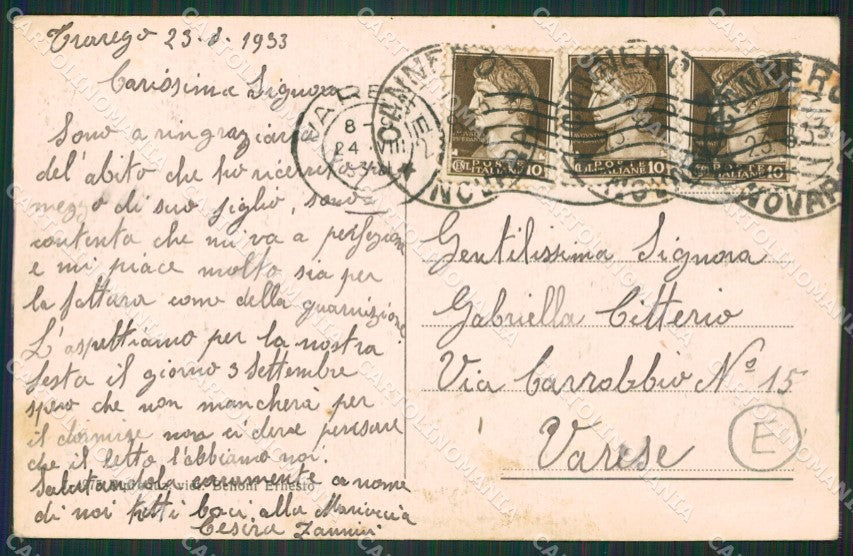 Trarego 23-8-1933
Carissima Signora
Sono a ringraziarla
del'abito che ho ricevuto per
mezzo di suo figlio, sono
contenta che mi va a perfezione
e mi piace molto sia per
la fattura come della guarnizione.
L'aspettiamo per la nostra
festa il giorno 3 Settembre
spero che non mancherà per
il dormire non ci deve pensare
che il letto l'abbiamo noi.
Salutandola caramente a nome
di noi tutti baci alla Mariuccia
Cesira Zannini
Belloni Ernesto
VARESE
8-
24 VIII
CANNERO
NOVARA
POSTE
ITALIANE
CENT. 10
CANNERO
NOVARA
POSTE
ITALIANE
10
CANNERO
23.8.33
NOVARA
POSTE
ITALIANE
10
Gentilissima Signora
Gabriella Citterio
Via Carrobbio Nº 15
Varese
E
CARTOLINOMANIA